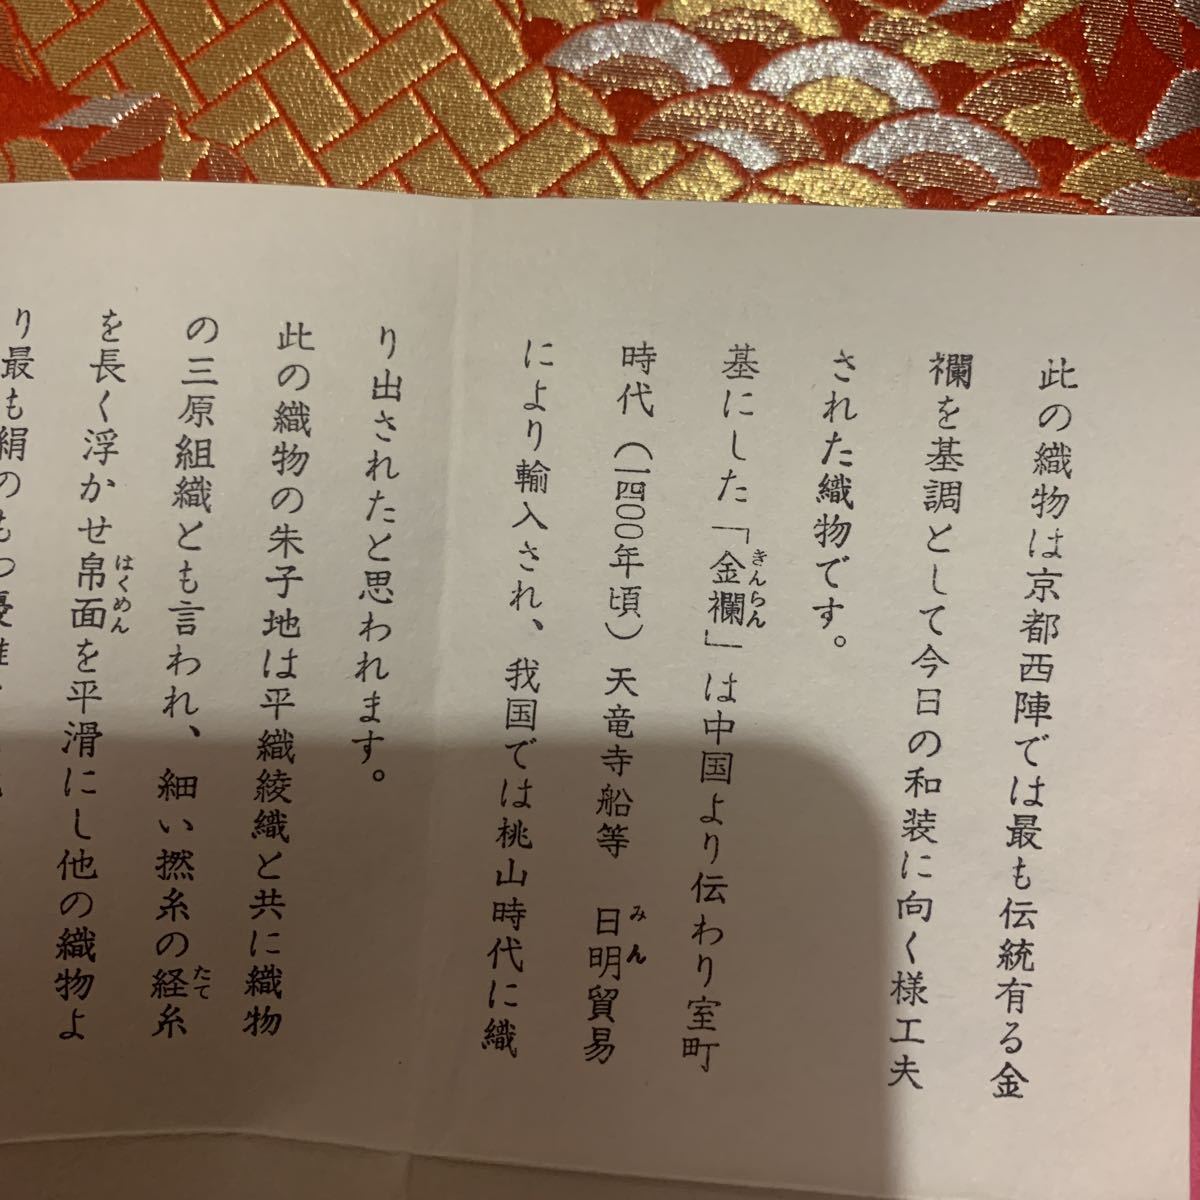 此の織物は京都西陣では最も伝統有る金
襴を基調として今日の和装に向く様工夫
された織物です。
基にした「金襴」は中国より伝わり室町
きんらん
時代(一四〇〇年頃)天竜寺船等　日明貿易
みん
により輸入され、我国では桃山時代に織
り出されたと思われます。
此の織物の朱子地は平織綾織と共に織物
の三原組織とも言われ、細い撚糸の経糸
たて
を長く浮かせ帛面を平滑にし他の織物よ
はくめん
り最も絹のもつ優雅